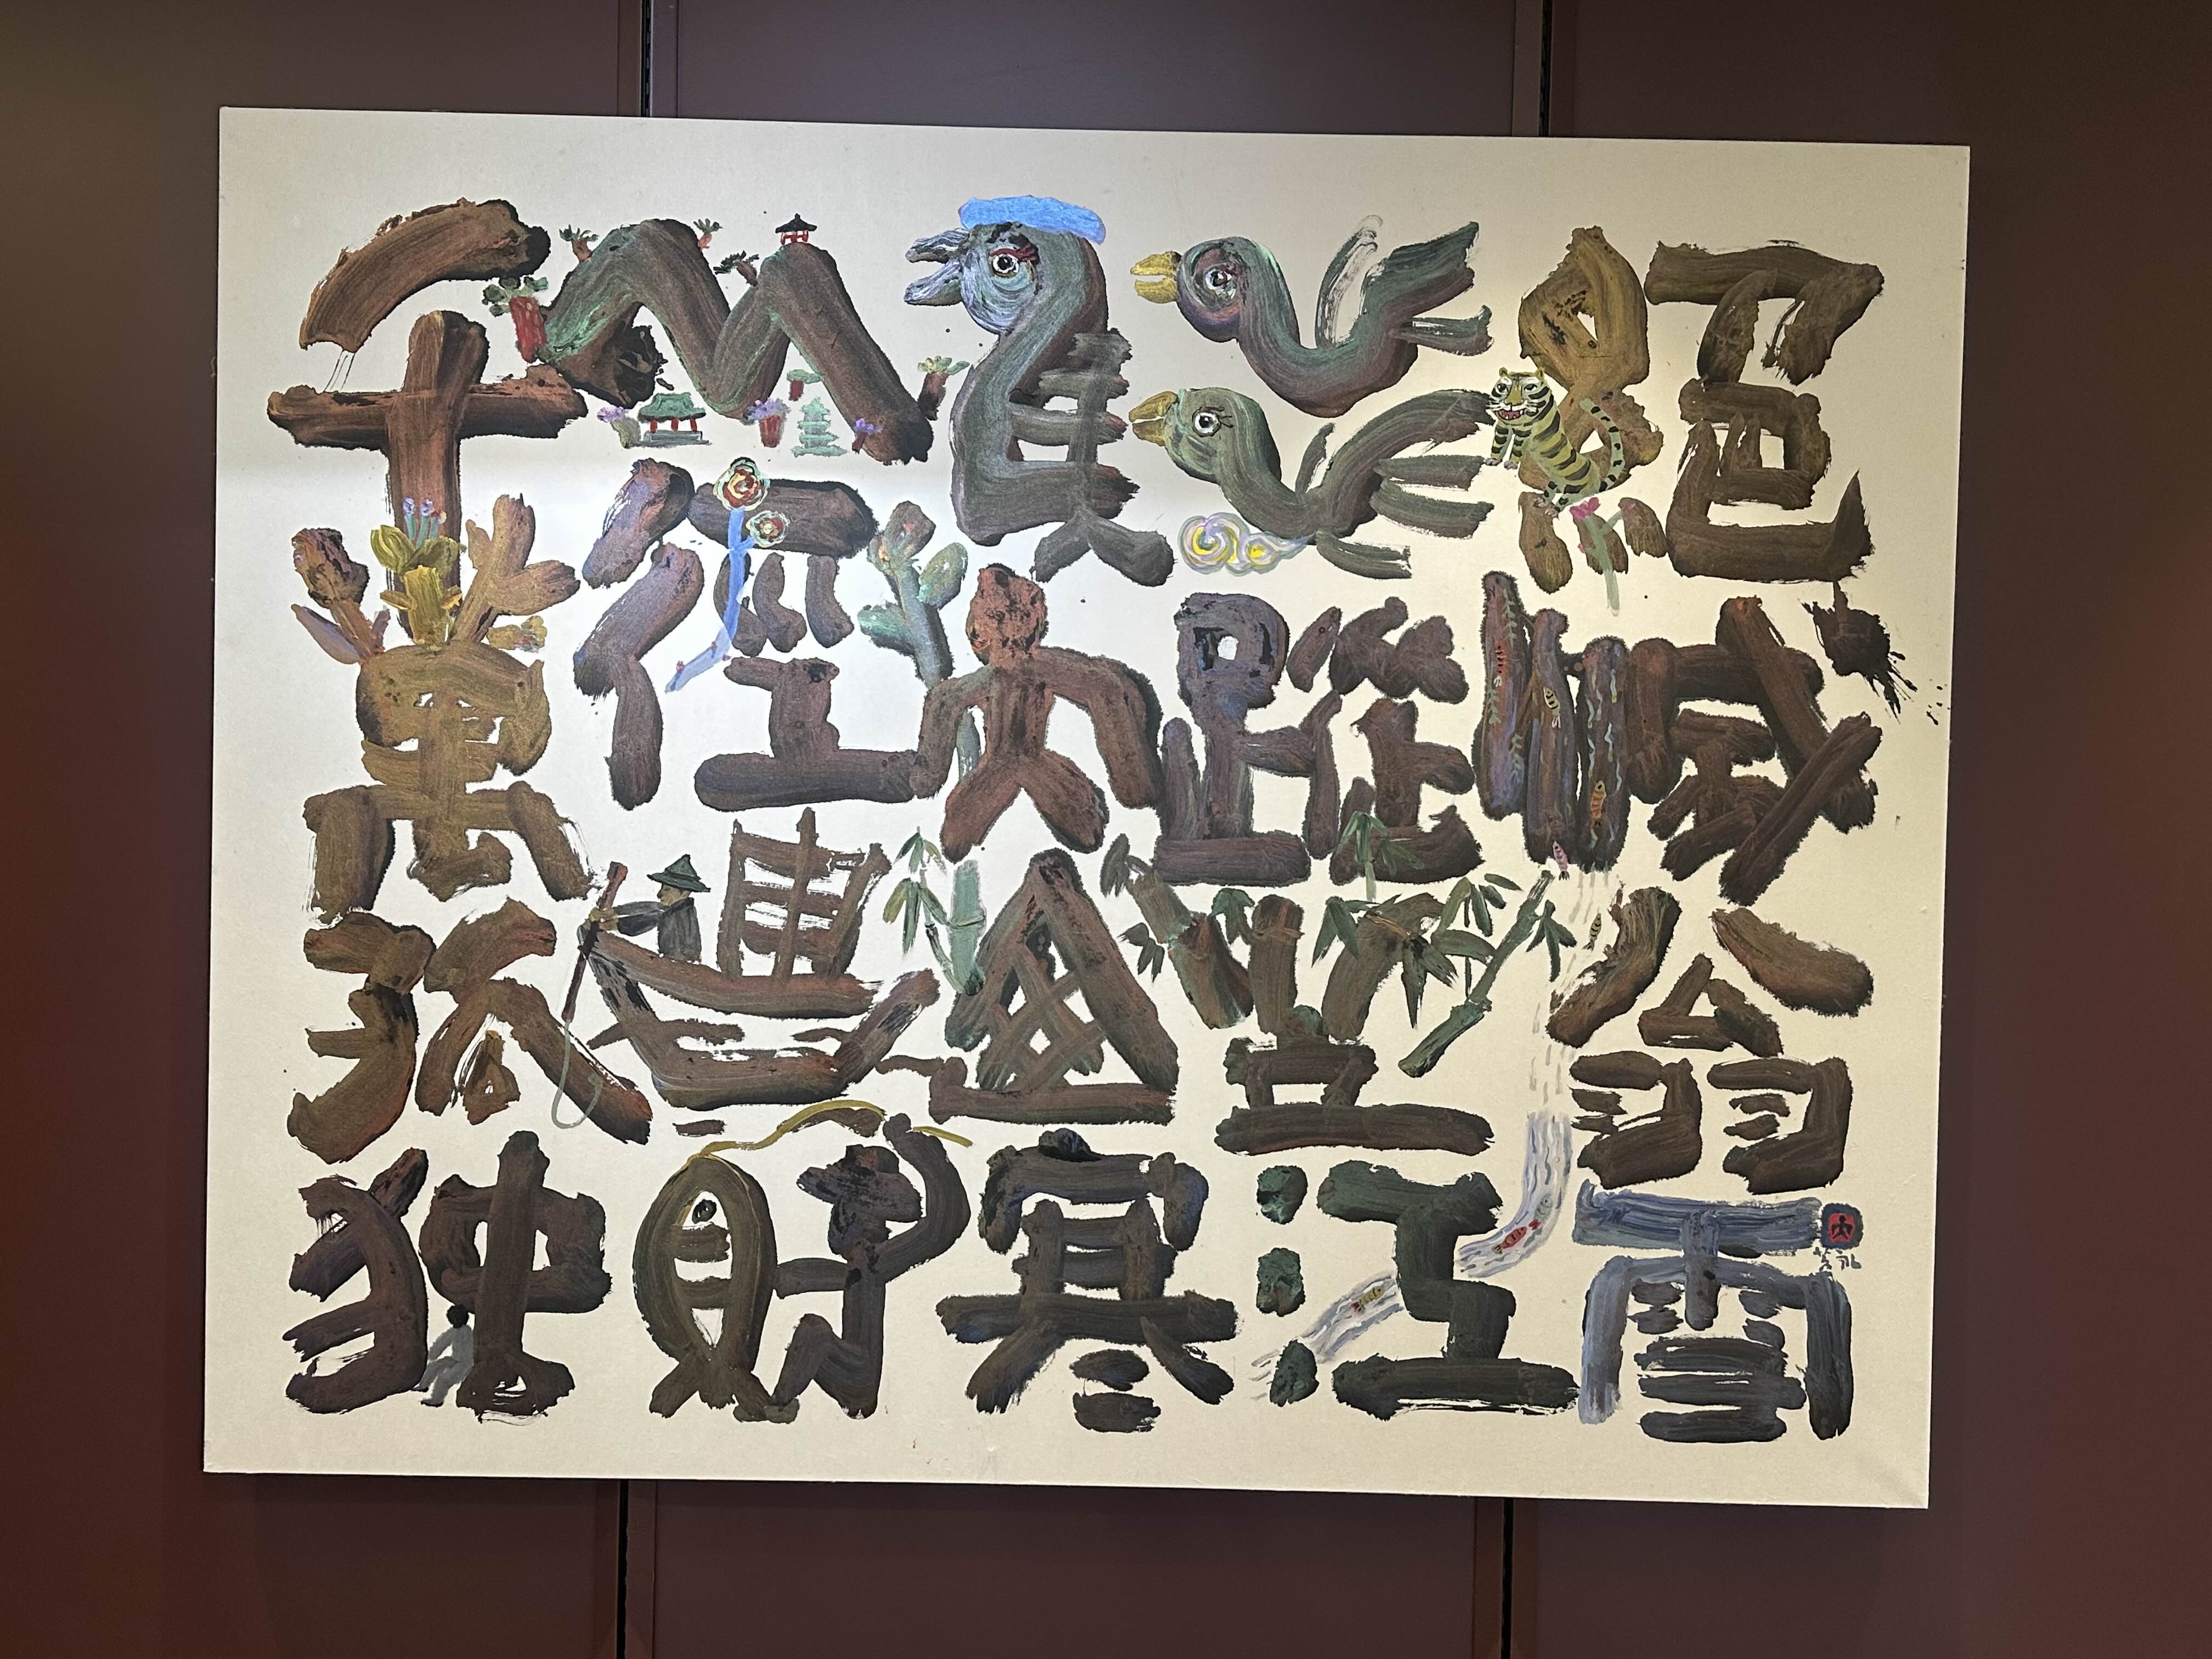 千山鳥飛絶
萬徑人蹤滅
孤舟蓑笠翁
独釣寒江雪